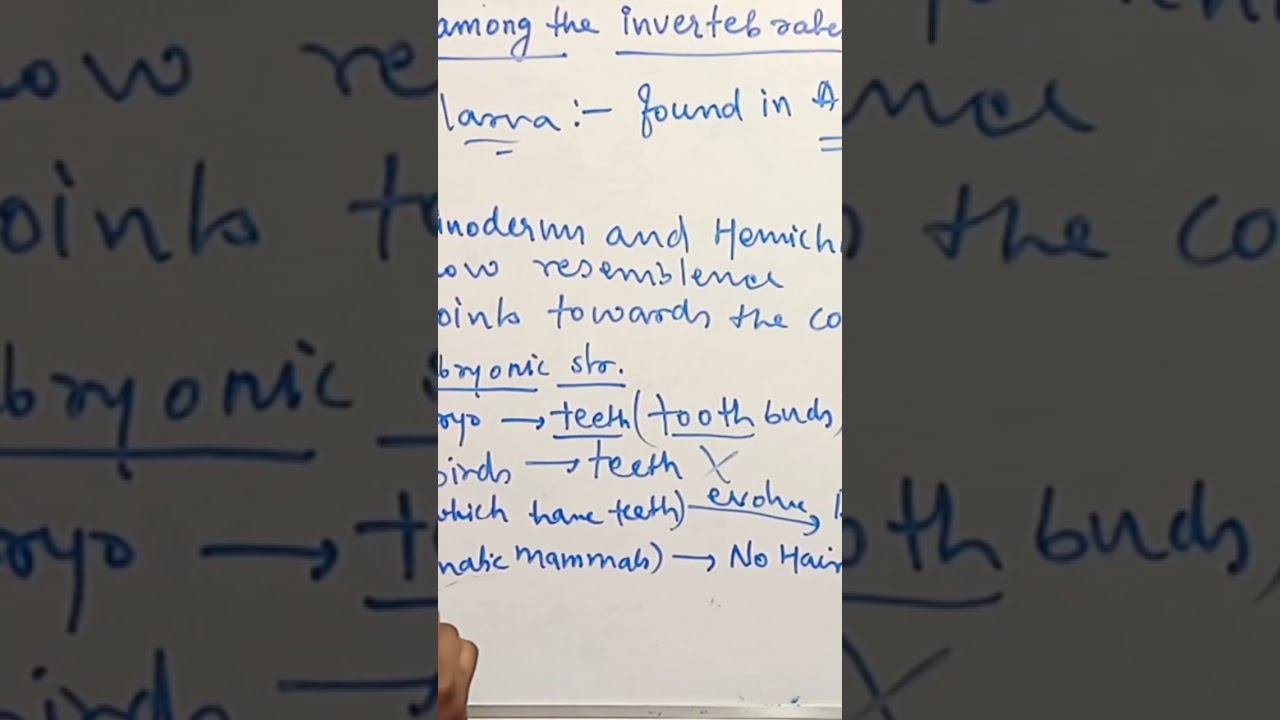 among the invertebrate
larva :- found in A
inoderm and Hemich
ow resemblence
oints towards the co
bryonic str.
ryo → teeth (tooth buds)
birds → teeth X
which have teeth) evolve
natic mammals) → No Hair